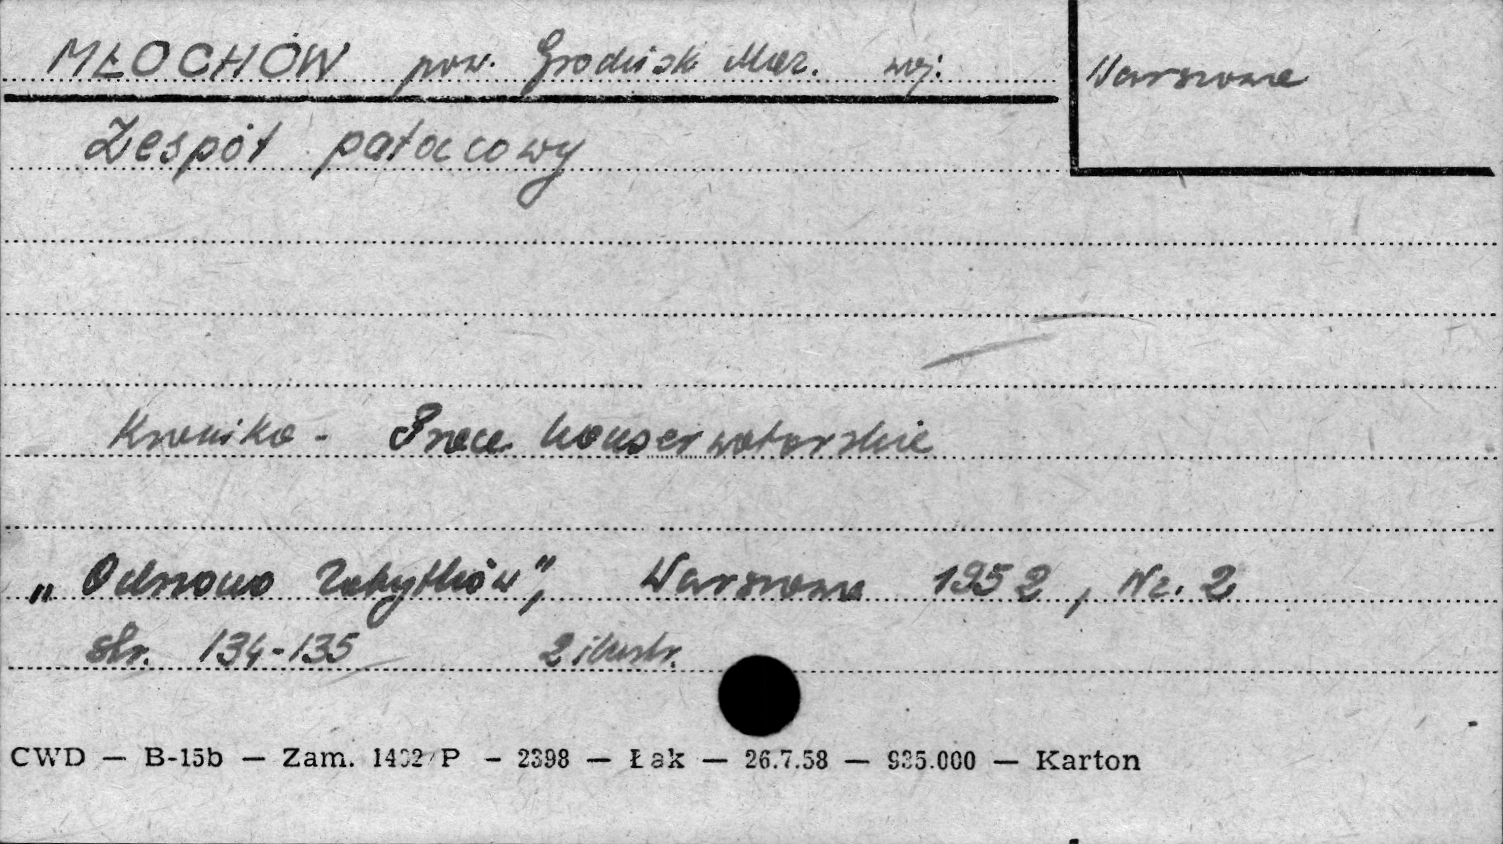 MŁOCHÓW pow. Grodzisk Maz. woj. Warszawa
Zespół pałacowy
Kronika - Prace konserwatorskie
„Ochrona Zabytków”, Warszawa 1952, Nr. 2
str. 134-135 2 ilustr.
CWD — B-15b — Zam. 1432/P — 2398 — Łak — 26.7.58 — 935.000 — Karton